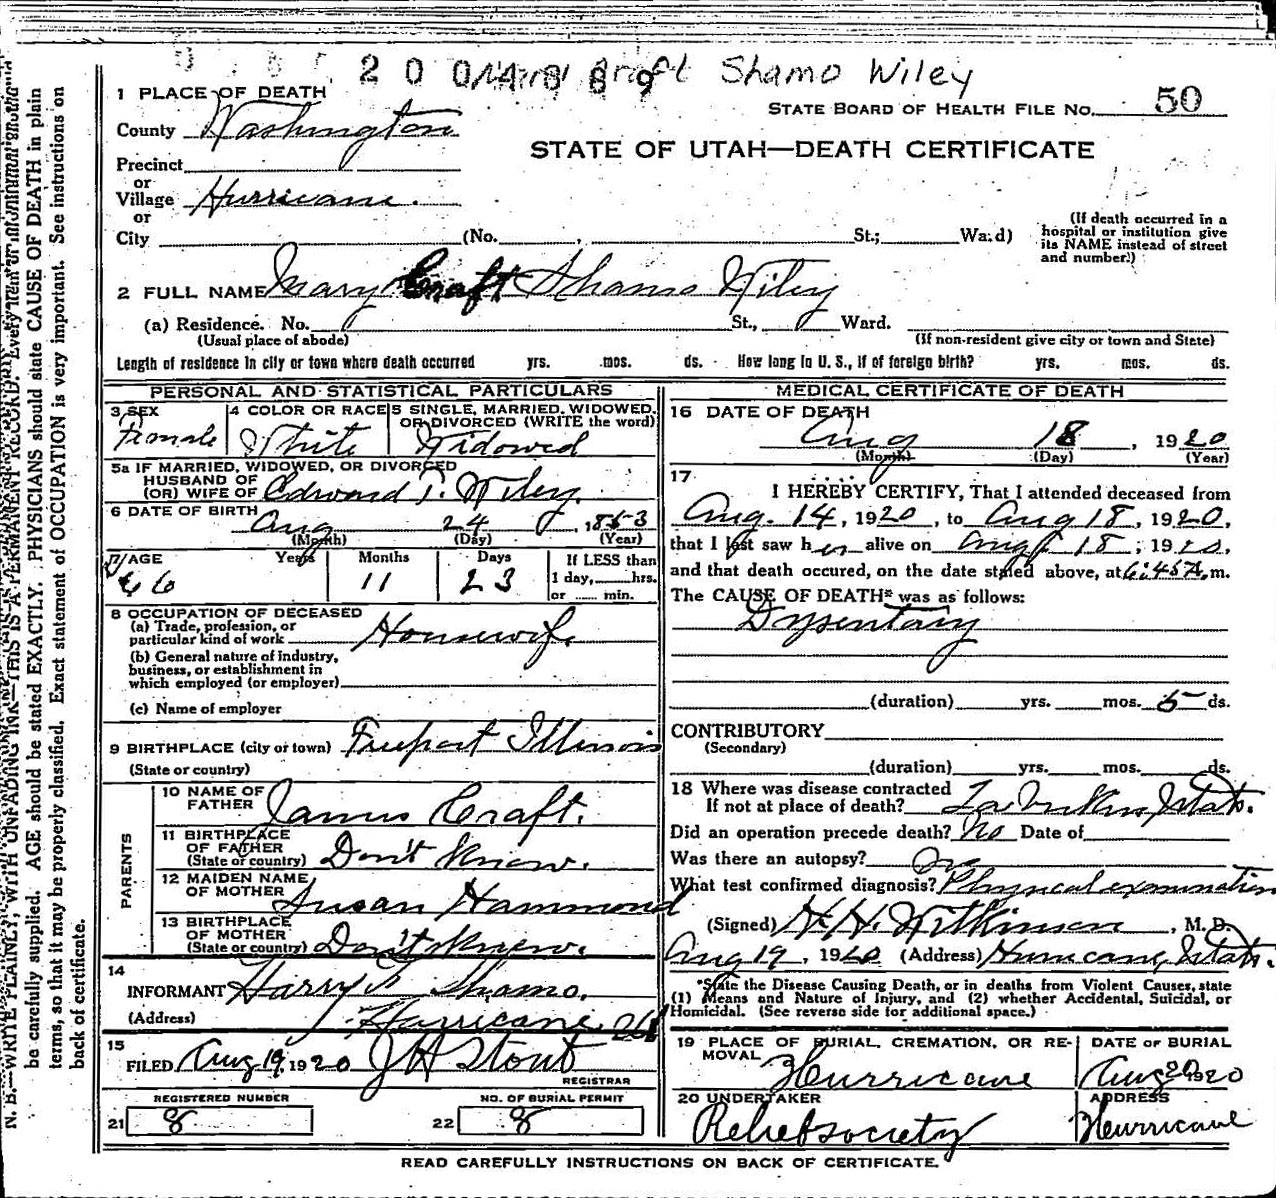 2 0 0 4 8 8 9 Craft Shamo Wiley
1 PLACE OF DEATH
STATE BOARD OF HEALTH FILE NO. 50
County Washington
STATE OF UTAH—DEATH CERTIFICATE
Precinct
or
Village Hurricane.
or
City (No. , St.; Ward)
(If death occurred in a hospital or institution give its NAME instead of street and number.)
2 FULL NAME Mary Craft Shamo Wiley
(a) Residence. No. St., Ward.
(Usual place of abode) (If non-resident give city or town and State)
Length of residence in city or town where death occurred yrs. mos. ds. How long in U. S., if of foreign birth? yrs. mos. ds.
PERSONAL AND STATISTICAL PARTICULARS
3 SEX Female
4 COLOR OR RACE White
5 SINGLE, MARRIED, WIDOWED, OR DIVORCED (WRITE the word) Widowed
5a IF MARRIED, WIDOWED, OR DIVORCED
HUSBAND OF
(OR) WIFE OF Edward T. Wiley.
6 DATE OF BIRTH Aug 24, 1853
(Month) (Day) (Year)
7 AGE Years Months Days If LESS than
66 11 23 1 day, hrs.
or min.
8 OCCUPATION OF DECEASED
(a) Trade, profession, or
particular kind of work Housewife
(b) General nature of industry,
business, or establishment in
which employed (or employer)
(c) Name of employer
9 BIRTHPLACE (city or town) Freeport Illinois
(State or country)
PARENTS
10 NAME OF
FATHER James Craft.
11 BIRTHPLACE
OF FATHER
(State or country) Don't Know.
12 MAIDEN NAME
OF MOTHER Susan Hammond
13 BIRTHPLACE
OF MOTHER
(State or country) Don't Know.
14
INFORMANT Harry T. Shamo.
(Address) Hurricane
15
FILED Aug 19, 1920 J H Stout
REGISTRAR
REGISTERED NUMBER NO. OF BURIAL PERMIT
21 8 22 8
MEDICAL CERTIFICATE OF DEATH
16 DATE OF DEATH
Aug 18, 1920
(Month) (Day) (Year)
17
I HEREBY CERTIFY, That I attended deceased from
Aug. 14, 1920, to Aug 18, 1920,
that I last saw her alive on Aug 18, 1920,
and that death occured, on the date stated above, at 6:45 A. m.
The CAUSE OF DEATH* was as follows:
Dysentary
(duration) yrs. mos. 5 ds.
CONTRIBUTORY
(Secondary)
(duration) yrs. mos. ds.
18 Where was disease contracted
If not at place of death? Utah.
Did an operation precede death? No Date of
Was there an autopsy? No
What test confirmed diagnosis? Physical examination
(Signed) H. H. Wilkinson, M. D.
Aug 19, 1920 (Address) Hurricane, Utah.
*State the Disease Causing Death, or in deaths from Violent Causes, state
(1) Means and Nature of Injury, and (2) whether Accidental, Suicidal, or
Homicidal. (See reverse side for additional space.)
19 PLACE OF BURIAL, CREMATION, OR RE-
MOVAL Hurricane
DATE OF BURIAL
Aug 20 1920
20 UNDERTAKER
Relief society
ADDRESS
Hurricane
READ CAREFULLY INSTRUCTIONS ON BACK OF CERTIFICATE.
N. B.—WRITE PLAINLY, WITH UNFADING INK—THIS IS A PERMANENT RECORD. Every item of information should
be carefully supplied. AGE should be stated EXACTLY. PHYSICIANS should state CAUSE OF DEATH in plain
terms, so that it may be properly classified. Exact statement of OCCUPATION is very important. See instructions on
back of certificate.